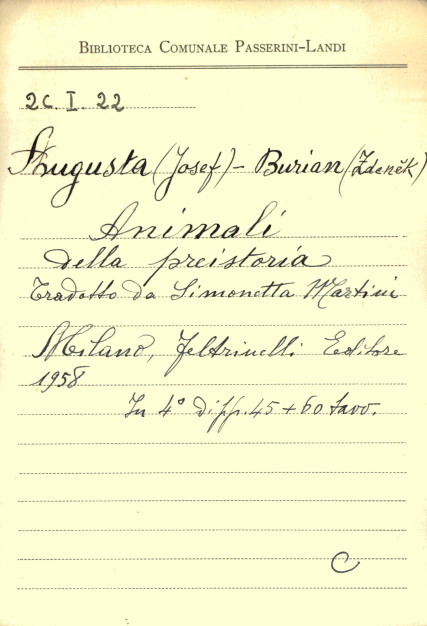 BIBLIOTECA COMUNALE PASSERINI-LANDI
2C. I. 22
Augusta (Josef) - Burian (Zdeněk)
Animali
della preistoria
Tradotto da Simonetta Martini
Milano, Feltrinelli Editore
1958
In 4° di pp. 45 + 60 tavv.
C